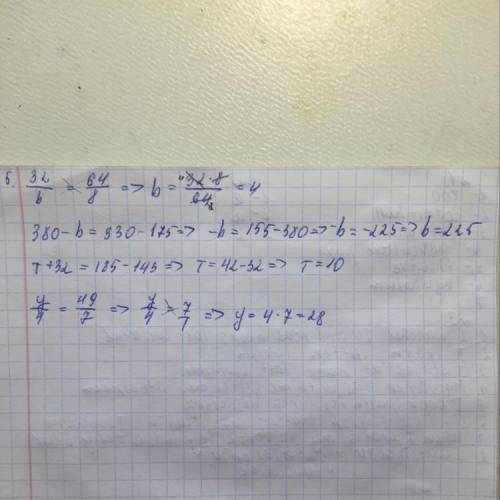 5. 32/b = 64/8 => b = 32·8/64 = 4
380 - b = 330 - 175 => -b = 155 - 380 => -b = -225 => b = 225
T + 32 = 185 - 143 => T = 42 - 32 => T = 10
y/4 = 49/7 => y/4 = 7/1 => y = 4·7 = 28